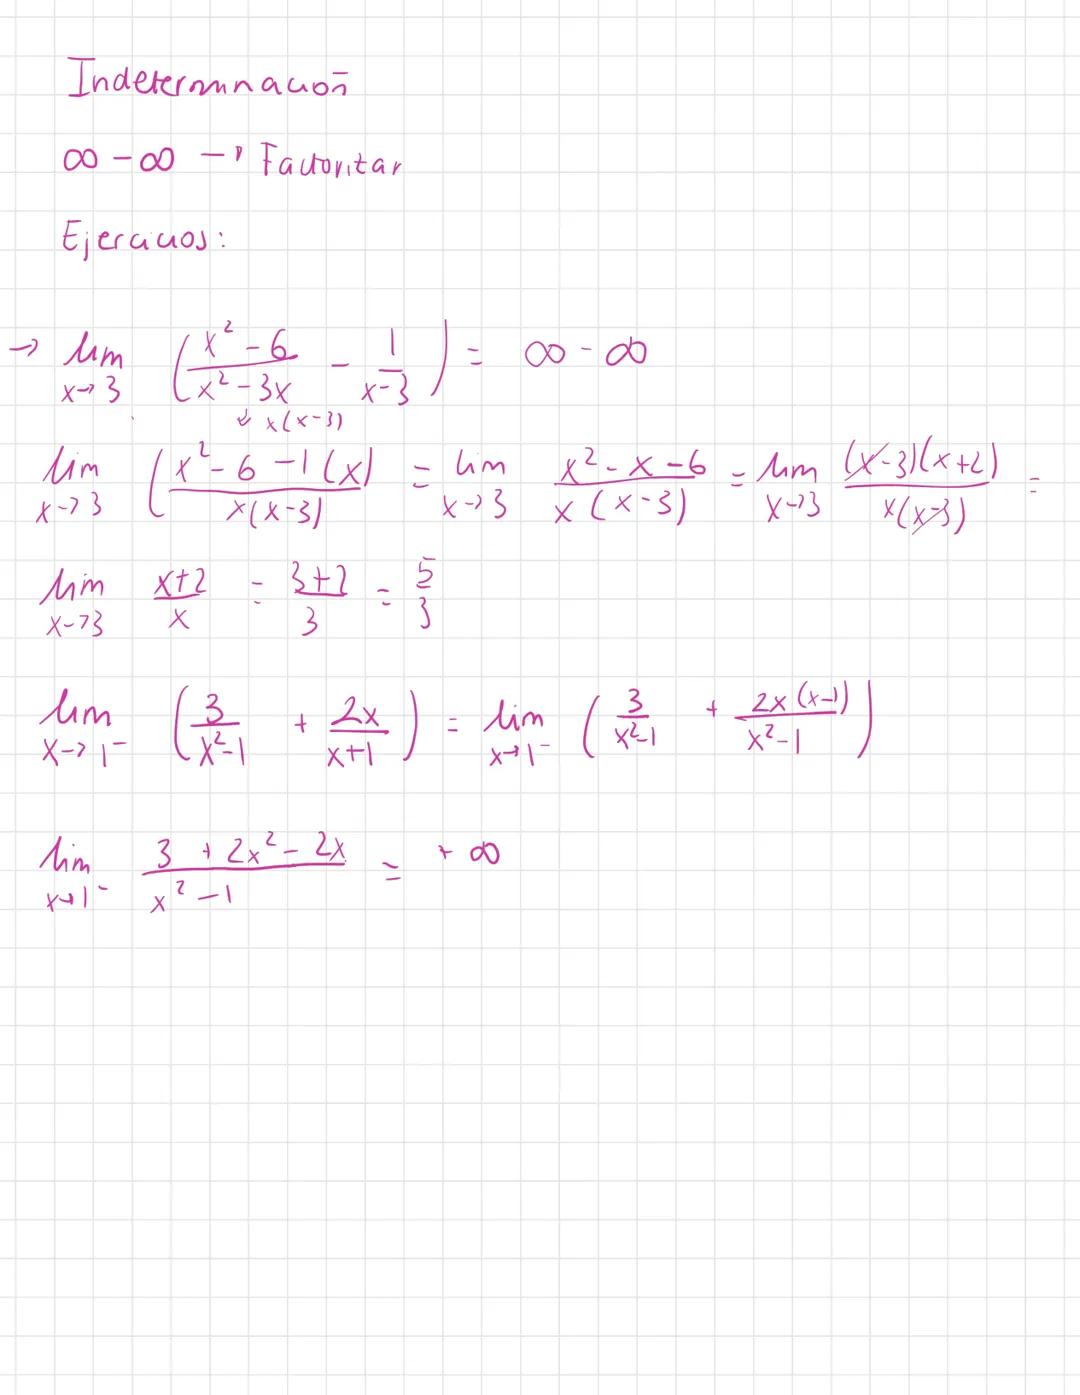 Indeterminación
∞ - ∞ → Factorizar
Ejercicios:
→ lim x→3 ( (x² - 6)/(x² - 3x) - 1/(x-3) ) = ∞ - ∞
↓ x(x-3)
lim x→3 ( (x² - 6 - 1(x))/(x(x-3)) = lim x→3 (x² - x - 6)/(x(x-3)) = lim x→3 ((x-3)(x+2))/(x(x-3)) =
lim x→3 (x+2)/x = (3+2)/3 = 5/3
lim x→1⁻ ( 3/(x²-1) + 2x/(x+1) ) = lim x→1⁻ ( 3/(x²-1) + (2x(x-1))/(x²-1) )
lim x→1⁻ (3 + 2x² - 2x)/(x² - 1) = + ∞